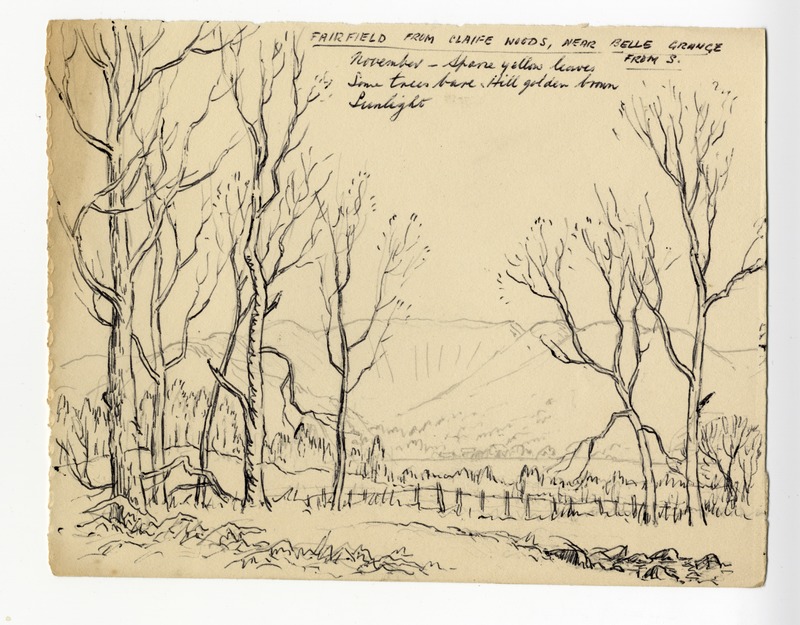 FAIRFIELD FROM CLAIFE WOODS, NEAR BELLE GRANGE
FROM S.
November – Sparse yellow leaves
Some trees bare. Hill golden brown
Sunlight